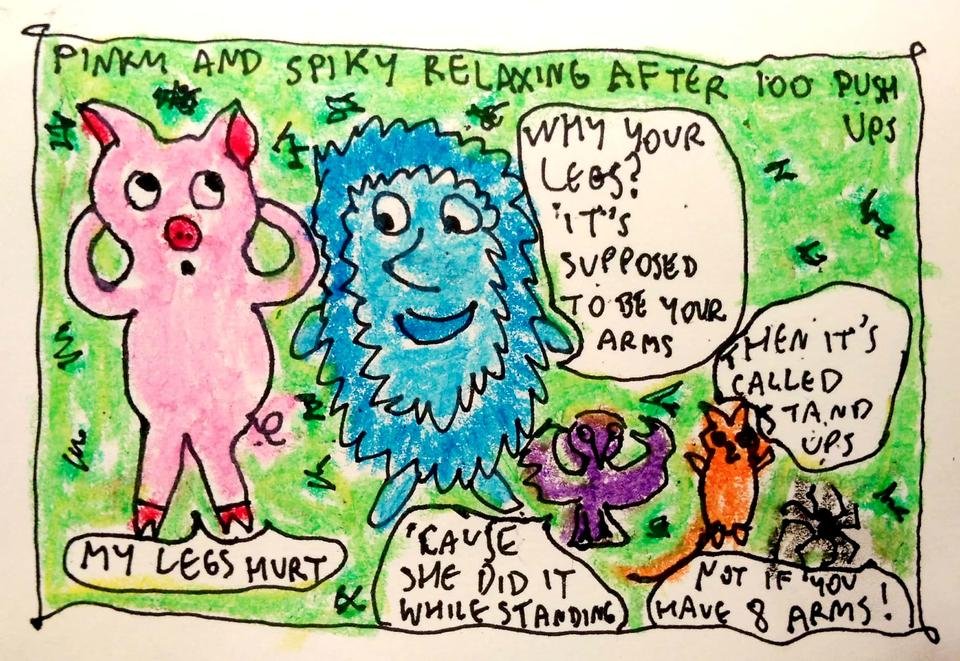 PINKY AND SPIKY RELAXING AFTER 100 PUSH
UPS
WHY YOUR
LEGS?
"IT"S
SUPPOSED
TO BE YOUR
ARMS
THEN IT'S
CALLED
STAND
UPS
MY LEGS HURT
'CAUSE
SHE DID IT
WHILE STANDING
NOT IF YOU
HAVE 8 ARMS!